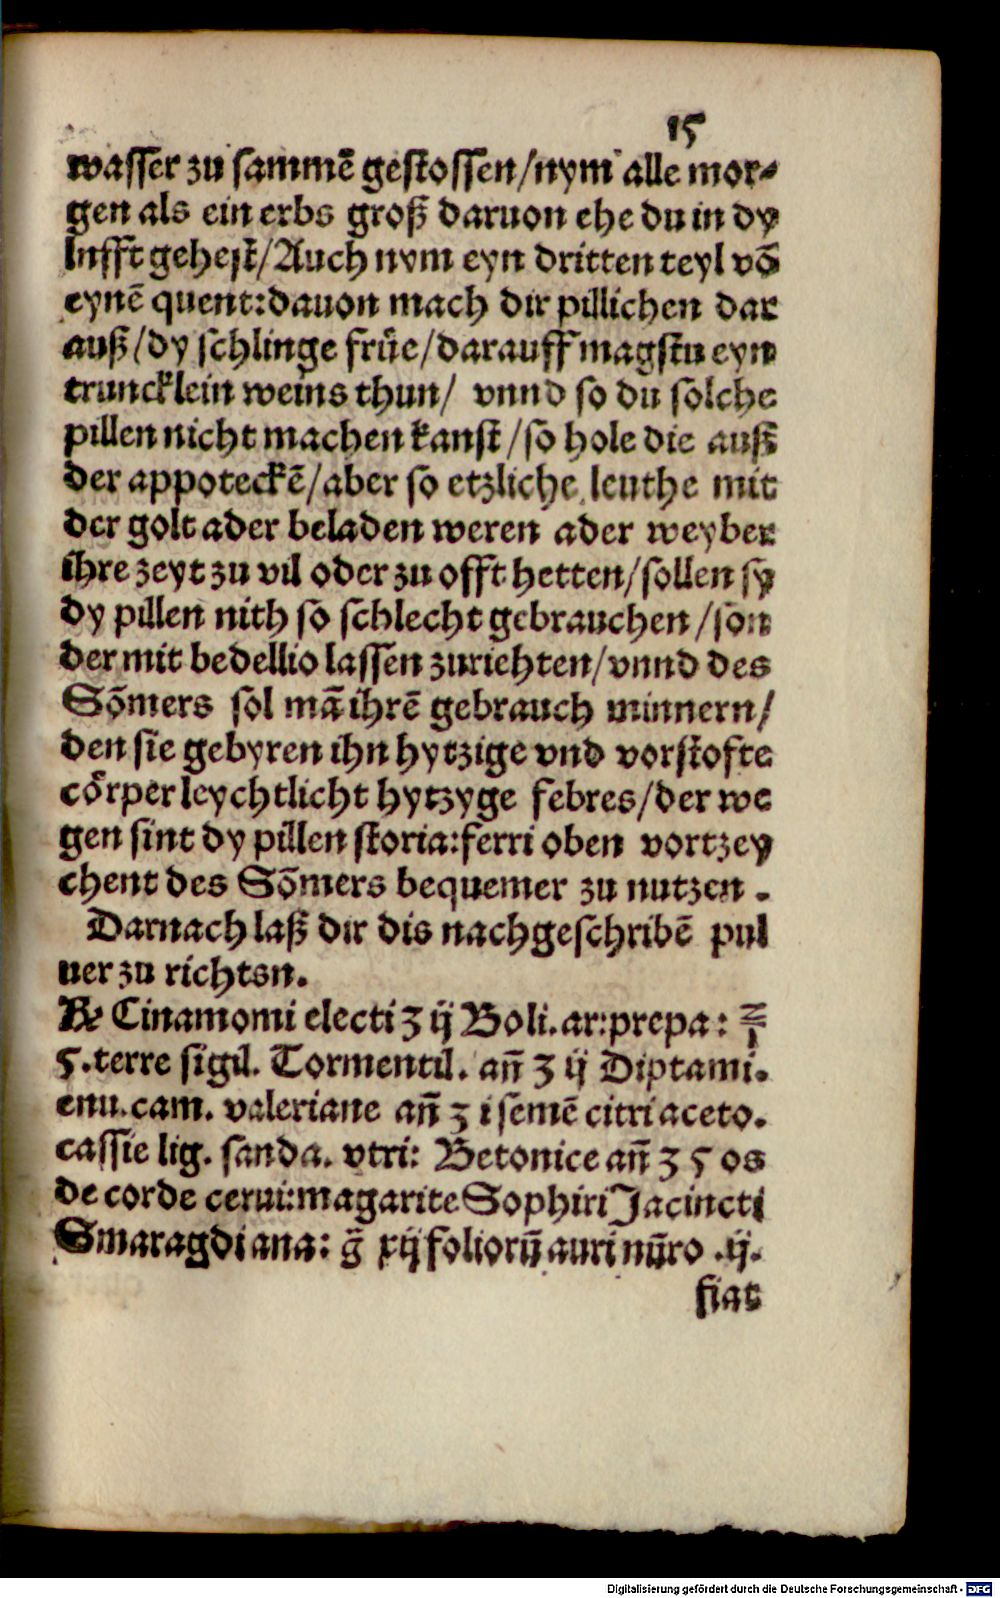 15
wasser zu sammē gestossen/nym alle mor-
gen als ein erbs groß daruon ehe du in dy
lufft gehest/Auch nym eyn dritten teyl vō
eynē quent:dauon mach dir pillichen dar
auß/dy schlinge früe/darauff magstu eyn
truncklein weins thun/ vnnd so du solche
pillen nicht machen kanst/so hole die auß
der appoteckē/aber so etzliche leuthe mit
der golt ader beladen weren ader weyber
ihre zeyt zu vil oder zu offt hetten/sollen sy
dy pillen nith so schlecht gebrauchen/son
der mit bedellio lassen zurichten/vnnd des
Sōmers sol mā ihrē gebrauch minnern/
den sie gebyren ihn hytzige vnd vorstofte
cörper leychtlicht hytzyge febres/der we
gen sint dy pillen storia:ferri oben vortzey
chent des Sōmers bequemer zu nutzen.
Darnach laß dir dis nachgeschribē pul
uer zu richten.
℞ Cinamomi electi ʒ ij Boli.ar:prepa: ʒ
5.terre sigil. Tormentil. añ ʒ ij Diptami.
enu.cam. valeriane añ ʒ i semē citri aceto.
cassie lig. sanda. vtri: Betonice añ ʒ 5 os
de corde cerui:magarite Sophiri Jacincti
Smaragdi ana: g̃ xij foliorū auri nūro .ij.
fiat
Digitalisierung gefördert durch die Deutsche Forschungsgemeinschaft - DFG